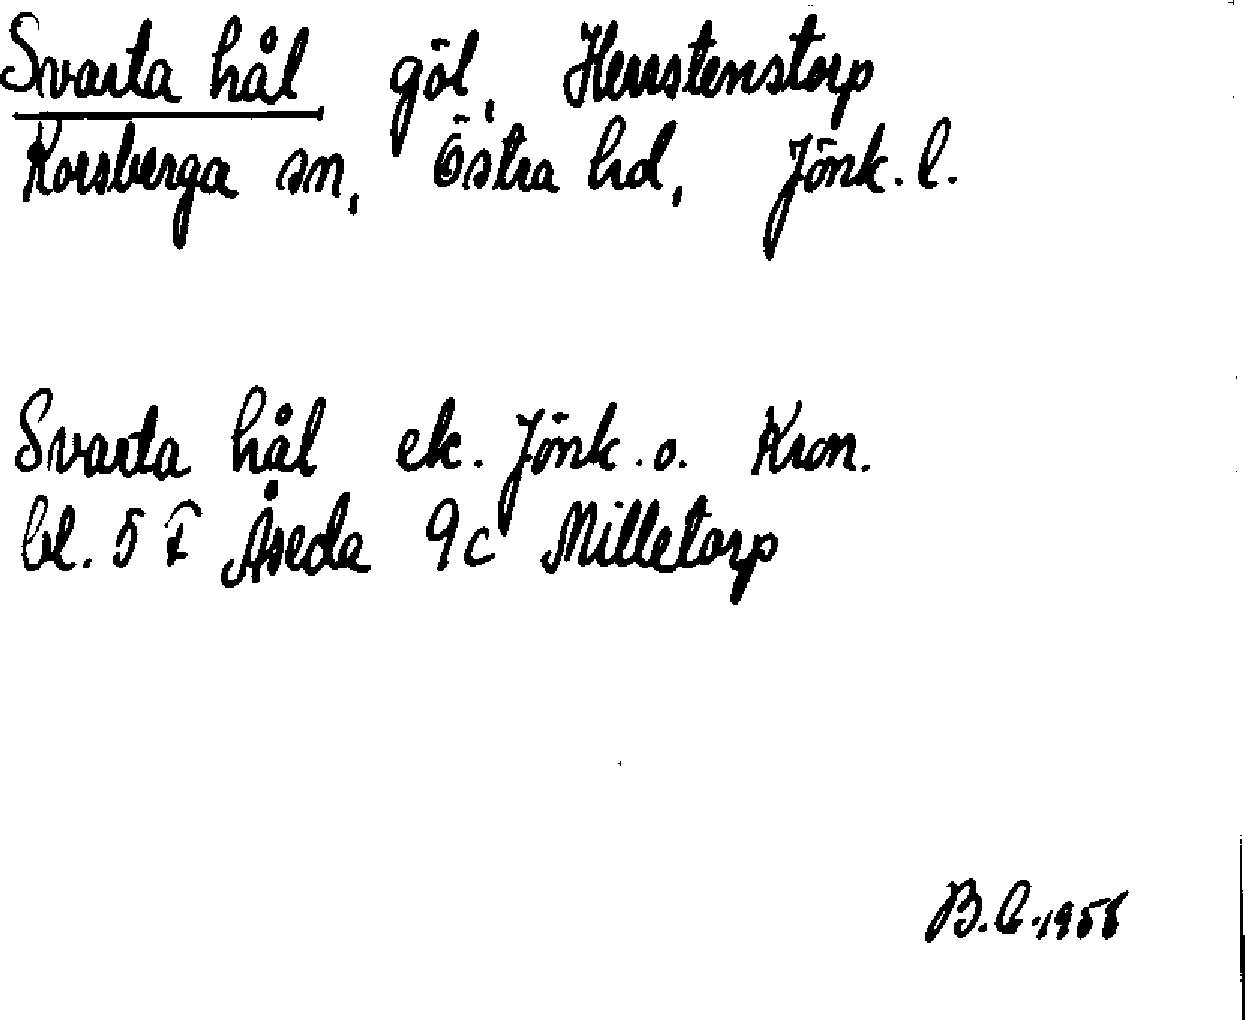 Svarta hål, göl, Herrstenstorp
Korsberga sn, Östra hd, Jönk. l.
Svarta hål ek. Jönk. o. Kron.
bl. 5 F Åseda 9c Milletorp
B. 1956